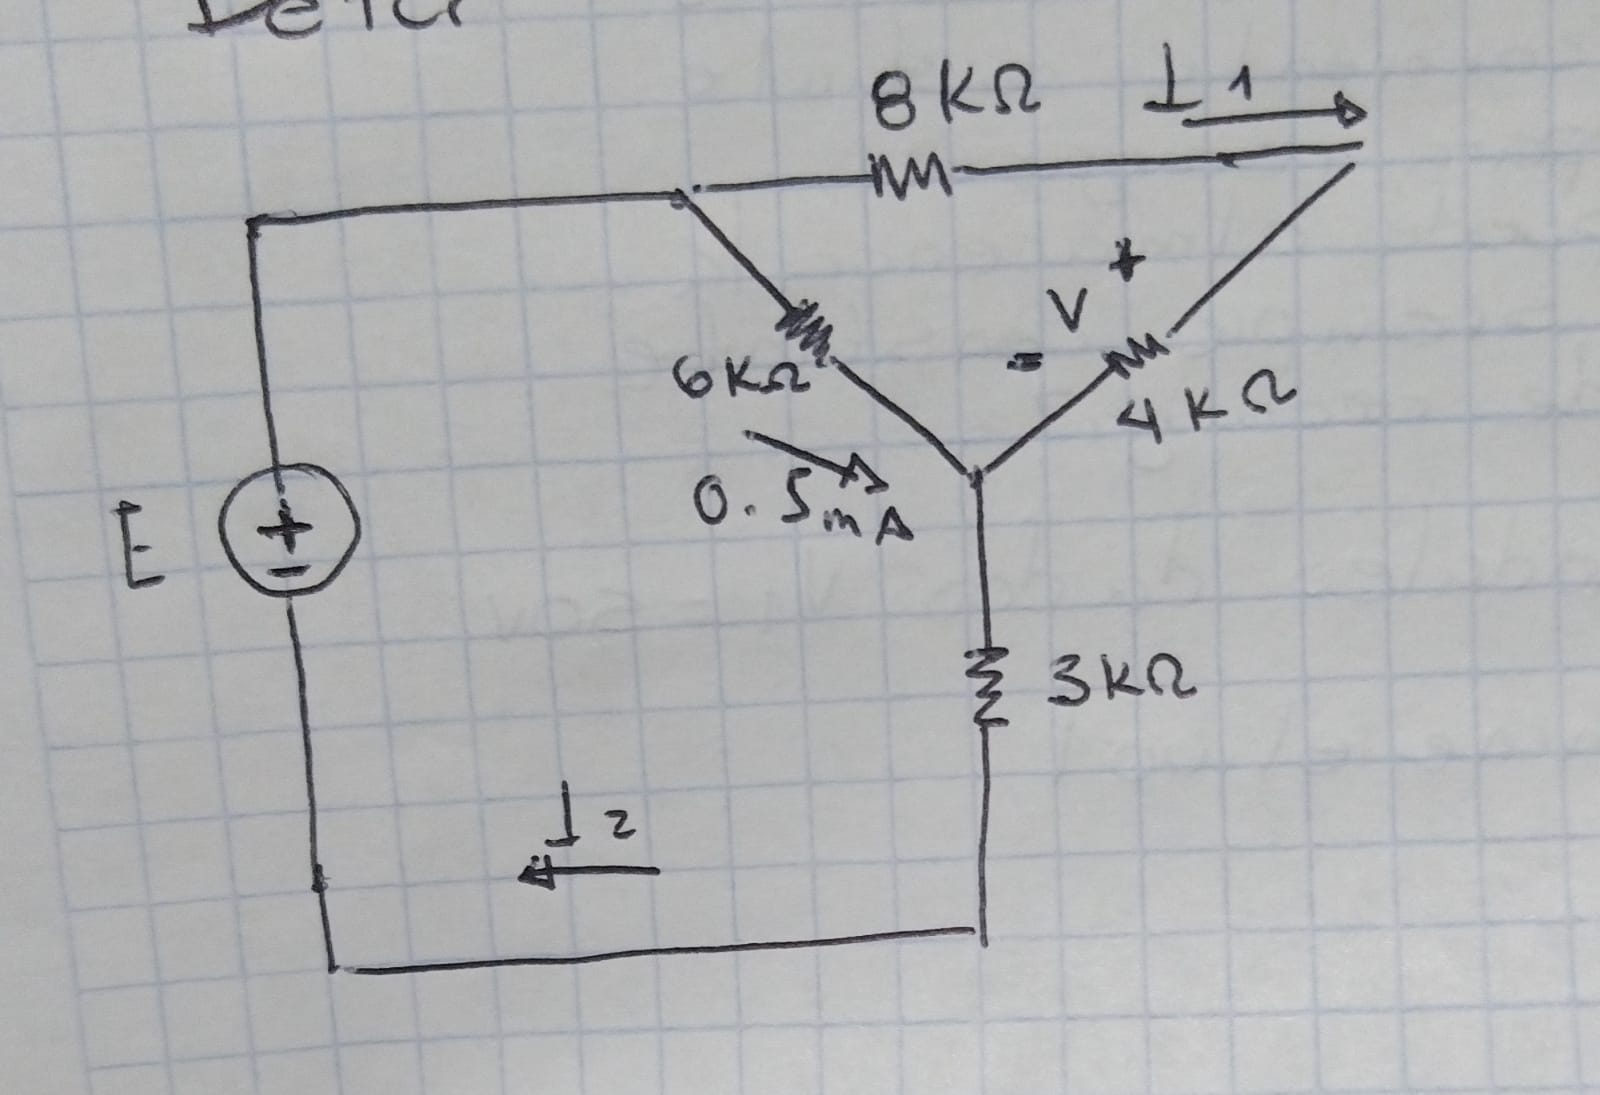 8 KΩ I1
+
V
-
6KΩ
4 KΩ
0.5mA
E
+
-
3KΩ
I2